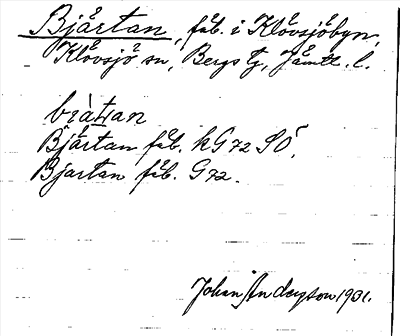 Bjårtan, fäb. i Klövsjöbyn,
Klövsjö sn, Bergs tg, Jämtl. l.
Bjårtan fäb. kG 72 SÖ.
Bjartan fäb. G 72.
Johan Anderson 1931.